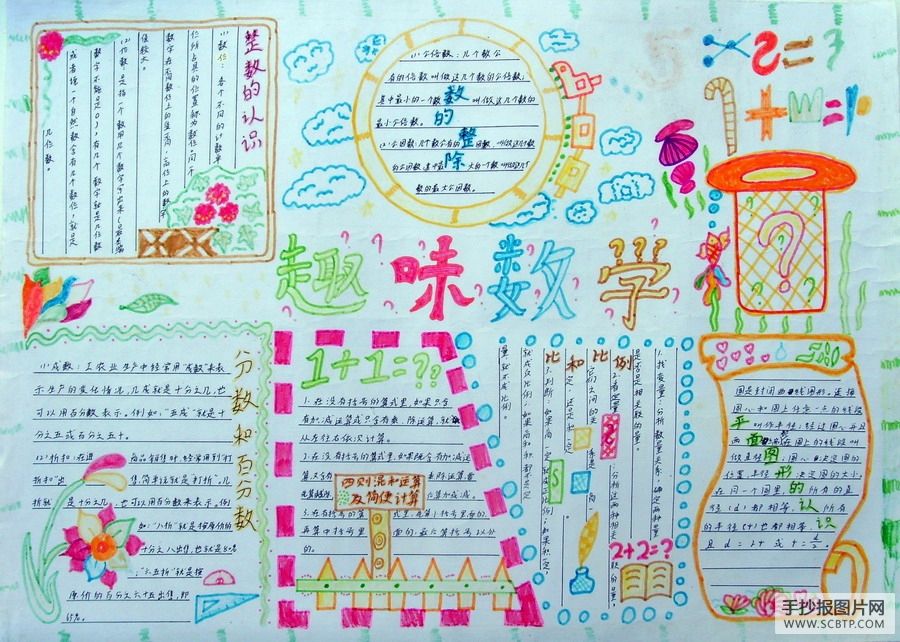 整数的认识
(1)数位：各个不同的计数单
位所占具的位置称为数位。同一个
数字在不同数位上的
值较大。
(2)位数：是指一个数用几个数字写出来(最左端
数字不能是0)，有几个数字就是几位数
或者指一个自然数含有几个数位，就是
几位数。
(1)公倍数：几个数公
有的倍数叫做这几个数的公倍数；
其中最小的一个数叫做这几个数的
最小公倍数。
(2)公因数：几个数公有的因数，叫做这几个数
的公因数；其中最大的一个数叫做这几个
数的最大公因数。
数的整除
2=?
+=
?
趣味数学
分数和百分数
(1)成数：工农业生产中经常用"成数"来表
示生产的变化情况，几成就是十分之几，也
可以用百分数表示。例如，"五成"就是十
分之五或百分之五十。
(2)折扣：在进商品销售时，经常用到"打
折扣"出售，简单说就是"打折"，几
折就是十分之几，也可以用百分数来表示。例
如："八折"就是按原价的
十分之八出售，也就是80%
；"六五折"就是按
原价的百分之六十五出售，即
65%。
1+1=??
1.在没有括号的算式里，如果只含
有加、减运算或只含有乘、除运算，就
从左往右依次计算。
2.在没有括号的算式里，如果既含有加、减运
算，又含有乘除运算，
先算乘除，加或减。
3.在有括号的算式里，先算括号里面的，
再算中括号里面的，最后算括号以外
的。
四则混和运算
及简便计算
比和比例
1.找变量：分析数量关系，确定两种量
是否是相关联的量。
2.看定量：分析这两种相关
它们之间的关系是
一定，还是
3.判断：如果商一定，
就成反比例；如果商和积都不是定
量，就不成比例。
2+2=?
平面图形的认识
圆是封闭曲线图形。连接
圆心和圆上任意一点的线段
叫作半径；经过圆心并且
两端都在圆上的线段叫
做直径。圆心决定圆的
位置，半径决定圆的大小。
在同一个圆里，所有的直
径(d)都相等，所有
的半径(r)也都相等。
且d=2r或r=d/2。
手抄报图片网
WWW.SCBTP.COM